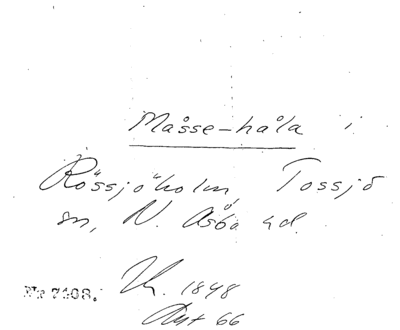 Måsse-håla i
Rössjöholm, Tossjö
sn, N. Åsbo hd.
Nr 7108. Uh. 1848
Ant 66